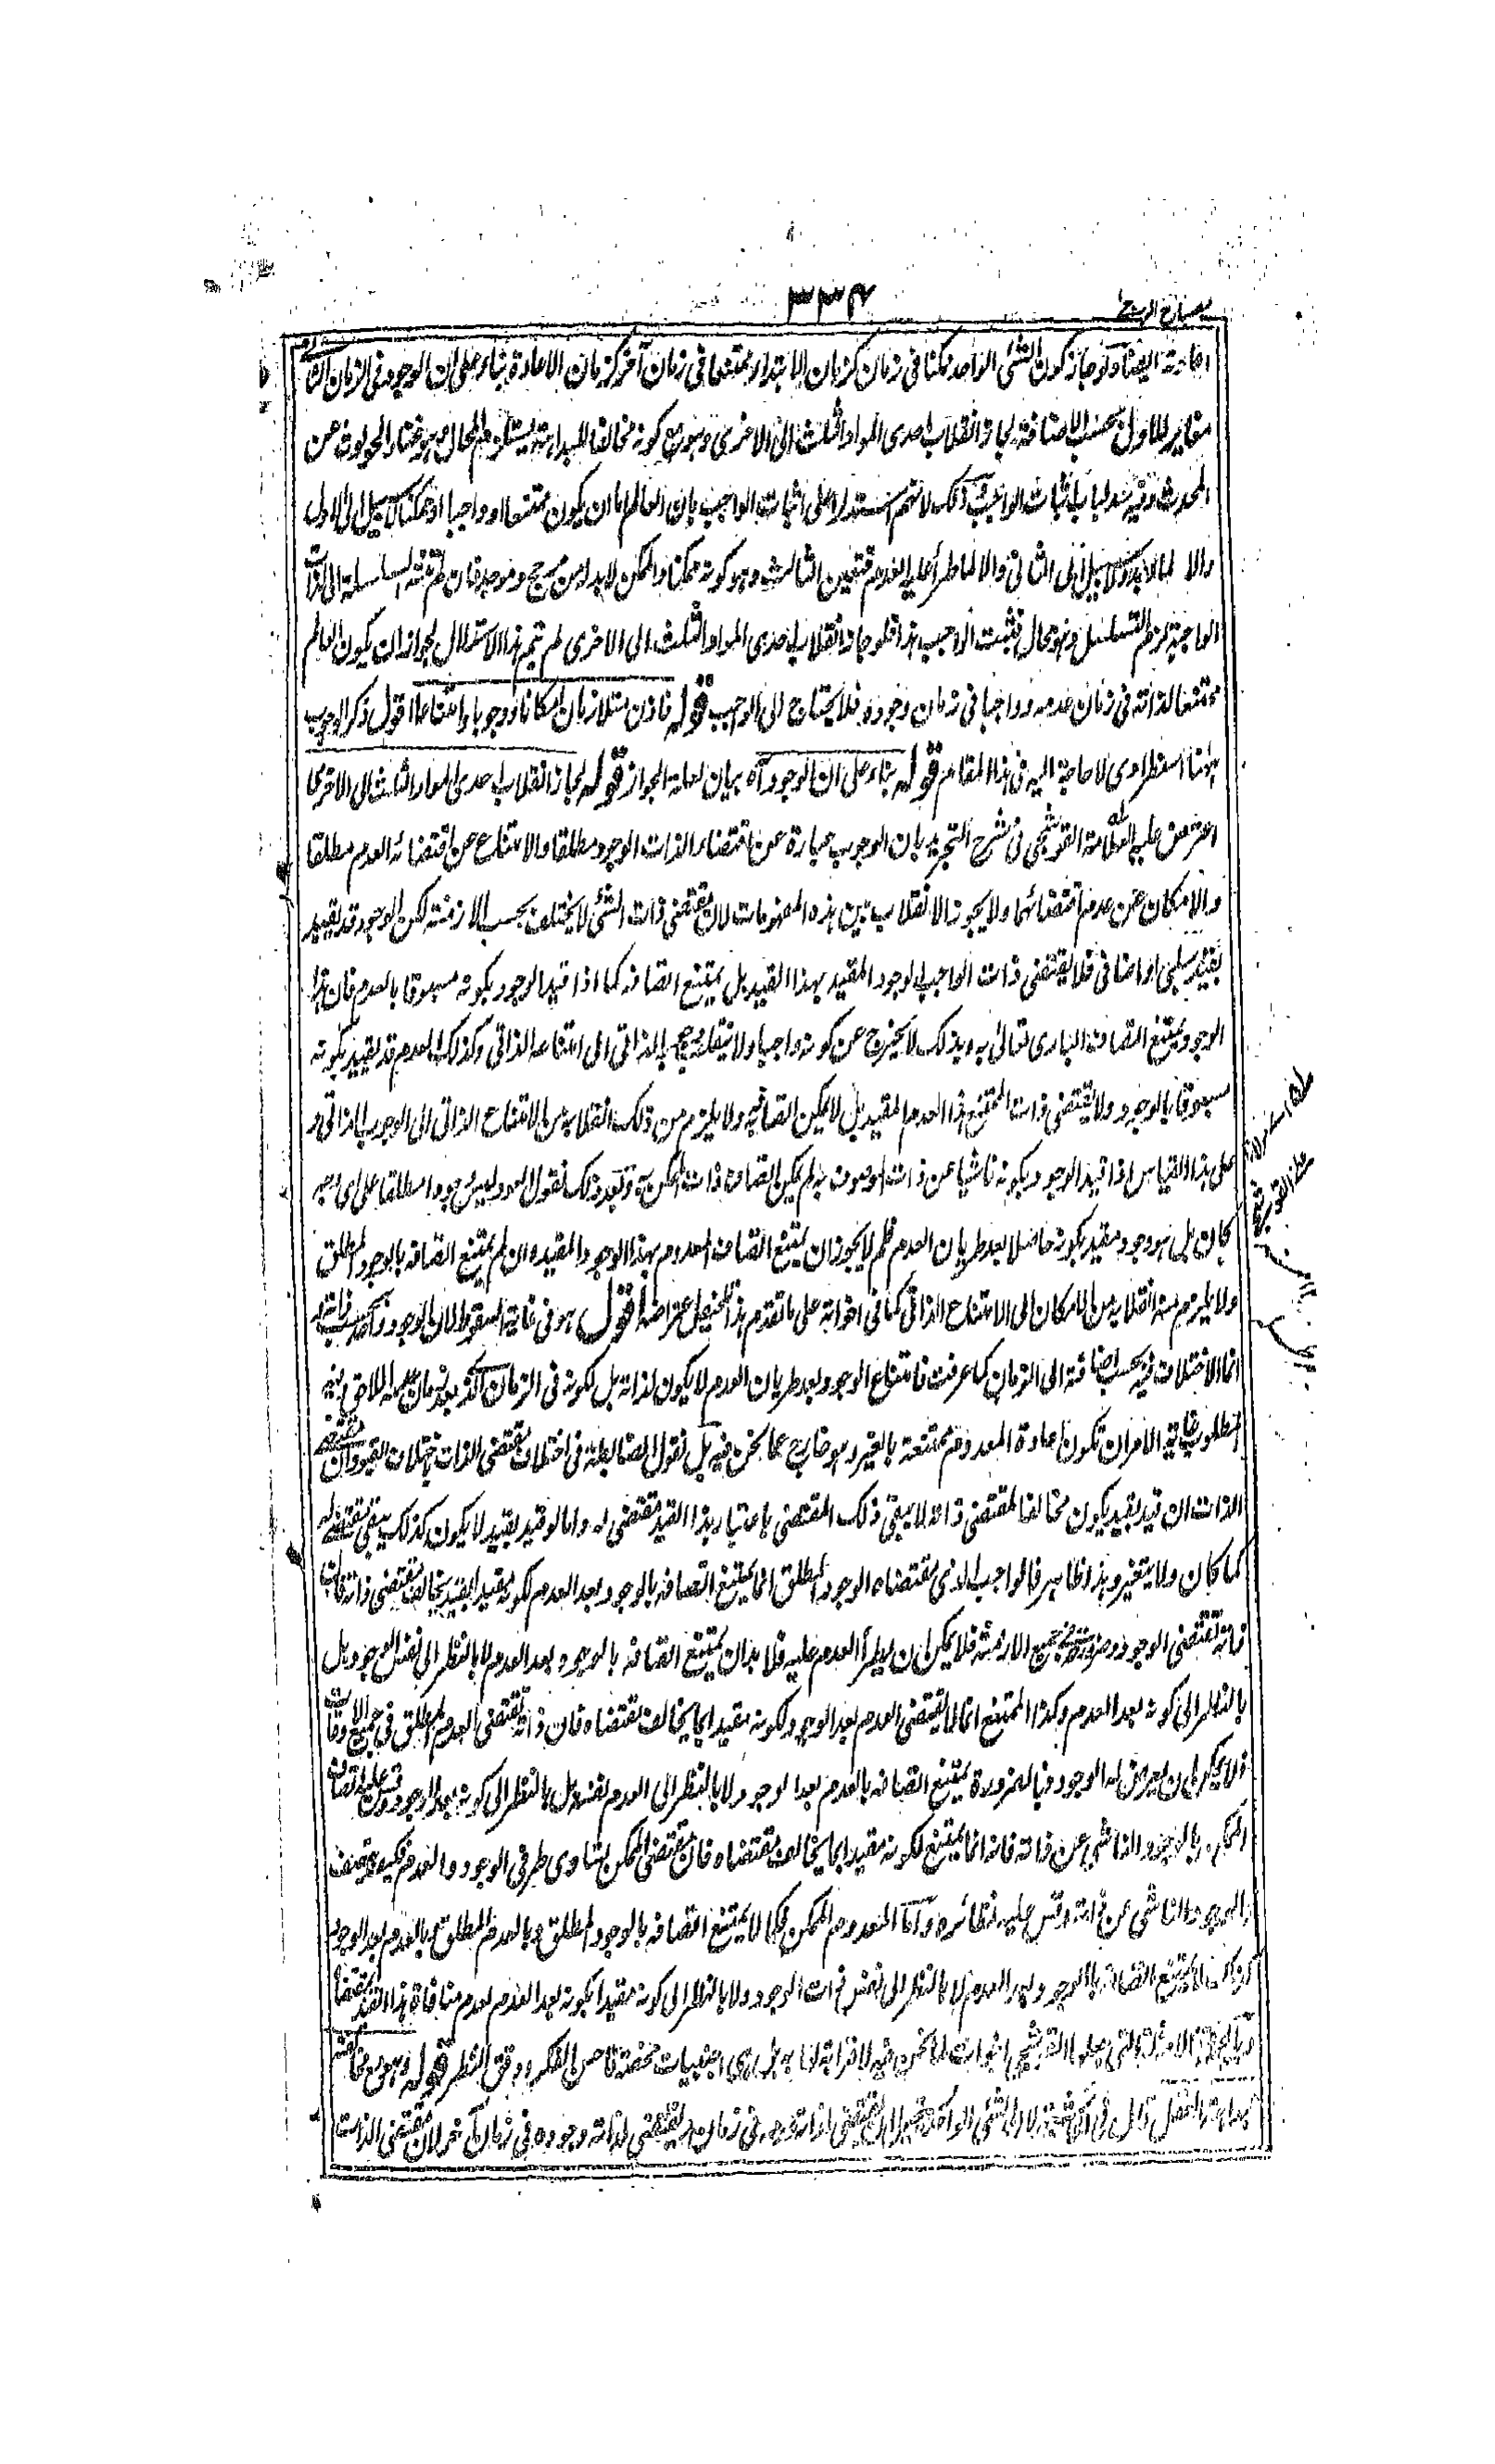 ٣٣٤
مصباح الدجى
اعادته ايضا ولو جاز كون الشئ الواحد ممكنا فى زمان كزمان الابتداء ممتنعا فى زمان آخر كزمان الاعادة بناء على ان الوجود فى الزمان الثانى
مغاير للاول بحسب الاضافة لجاز انقلاب احدى المواد الثلث الى الاخرى وهو مع كونه مخالفا للبداهة يستلزم المحال وهو غناء الحوادث عن
المحدث وفيه سد لباب اثبات الواجب وذلك لانهم استدلوا على اثبات الواجب بان العالم اما ان يكون ممتنعا او واجبا او ممكنا لا سبيل الى الاول
والا لما لا سبيل الى الثانى والا لما طرأ عليه العدم فتعين الثالث وهو كونه ممكنا والممكن لابد له من مرجح وموجد فان لم تنته السلسلة الى الذات
الواجبة لزم التسلسل وهو محال فثبت الواجب هذا فلو جاز انقلاب احدى المواد الثلث الى الاخرى لم يتم هذا الاستدلال لجواز ان يكون العالم
ممتنعا لذاته فى زمان عدمه وواجبا فى زمان وجوده فلا يحتاج الى الواجب قوله فاذن متلازمان امكانا ووجوبا وامتناعا اقول ذكر الوجوب
ههنا استطرادى لا حاجة اليه فى هذا المقام قوله بناء على ان الوجود آه بيان لعلة الجواز قوله لجاز انقلاب احدى المواد الثلث الى الاخرى
اعترض عليه العلامة القوشجى فى شرح التجريد بان الوجوب عبارة عن اقتضاء الذات الوجود مطلقا والامتناع عن اقتضائه العدم مطلقا
والامكان عن عدم اقتضائهما ولا يجوز الانقلاب بين هذه المفهومات لان مقتضى ذات الشئ لا يختلف بحسب الازمنة لكن الوجود قد يقيد
بقيد سلبى او اضافى فلا يقتضى ذات الواجب الوجود المقيد بهذا القيد بل يمتنع اتصافه كما اذا قيد الوجود بكونه مسبوقا بالعدم فان هذا
الوجود يمتنع اتصاف البارى تعالى به وبذلك لا يخرج عن كونه واجبا ولا ينقلب وجوبه الذاتى الى امتناعه الذاتى وكذلك العدم قد يقيد بكونه
مسبوقا بالوجود ولا يقتضى ذات الممتنع هذا العدم المقيد بل لا يمكن اتصافه به ولا يلزم من ذلك انقلابه من الامتناع الذاتى الى الوجوب الذاتى و
على هذا القياس اذا قيد الوجود بكونه ناشيا عن ذات الموصوف به لم يمكن اتصاف ذات الممكن به وبعد ذلك نقول العود ليس وجودا مطلقا على اى وجه
كان بل هو وجود مقيد بكونه حاصلا بعد طريان العدم فلم لا يجوز ان يمتنع اتصاف المعدوم بهذا الوجود المقيد وان لم يمتنع اتصافه بالوجود المطلق
ولا يلزم منه انقلابه من الامكان الى الامتناع الذاتى كما فى اخواته على ما تقدم هذا اقول هو فى غاية السقوط لان الوجود واحد بحسب ذاته و
انما الاختلاف فيه بحسب اضافته الى الزمان كما عرفت فامتناع الوجود بعد طريان العدم لا يكون لذاته بل لكونه فى الزمان
المطلوب غاية الامر ان تكون اعادة المعدوم ممتنعة بالغير وهو خارج عما نحن فيه بل نقول الضابطة فى اختلاف مقتضى الذات باختلاف القيود ان مقتضى
الذات ان قيد بقيد يكون مخالفا لمقتضى ذاته لا يبقى ذلك المقتضى باعتبار هذا القيد مقتضى له واما لو قيد بقيد لا يكون كذلك يبقى مقتضى له
كما كان ولا يتغير وهذا ظاهر فالواجب الذى مقتضاه الوجود المطلق انما يمتنع اتصافه بالوجود بعد العدم لكونه مقيدا بقيد يخالف مقتضى ذاته فان
ذاته تقتضى الوجود وضرورته فى جميع الازمنة فلا يمكن ان يطرأ العدم عليه فلا بد ان يمتنع اتصافه بالوجود بعد العدم لا بالنظر الى نفس الوجود بل
بالنظر الى كونه بعد العدم وكذا الممتنع انما لا يقتضى العدم بعد الوجود لكونه مقيدا بما يخالف مقتضاه فان ذاته تقتضى العدم المطلق فى جميع الاوقات
فلا يمكن ان يعرض له الوجود فبالضرورة يمتنع اتصافه بالعدم بعد الوجود لا بالنظر الى العدم نفسه بل بالنظر الى كونه بعد الوجود وقس عليه اتصاف
الممكن بالوجود الناشى عن ذاته فانه انما يمتنع لكونه مقيدا بما يخالف مقتضاه فان مقتضى الممكن تساوى طرفى الوجود والعدم فكيف يتصف
بالوجود الناشى عن ذاته وقس عليه نظائره واما المعدوم الممكن فكما لا يمتنع اتصافه بالوجود المطلق وبالعدم المطلق وبالعدم بعد الوجود
كذلك لا يمتنع اتصافه بالوجود بعد العدم لا بالنظر الى نفس ذات الوجود ولا بالنظر الى كونه مقيدا بكونه بعد العدم لعدم منافاة هذا القيد لمقتضاه
وبالجملة الامثلة التى جعلها القوشجى اخوات لما نحن فيه لا قرابة لها به بل هى اجنبيات محضة فاحسن الفكر ودقق النظر قوله وهو مع مخالفته
بداهة العقل قال فى الحاشية لان الشئ الواحد يقتضى لذاته عدمه فى زمان ويقتضى لذاته وجوده فى زمان آخر لان مقتضى الذات